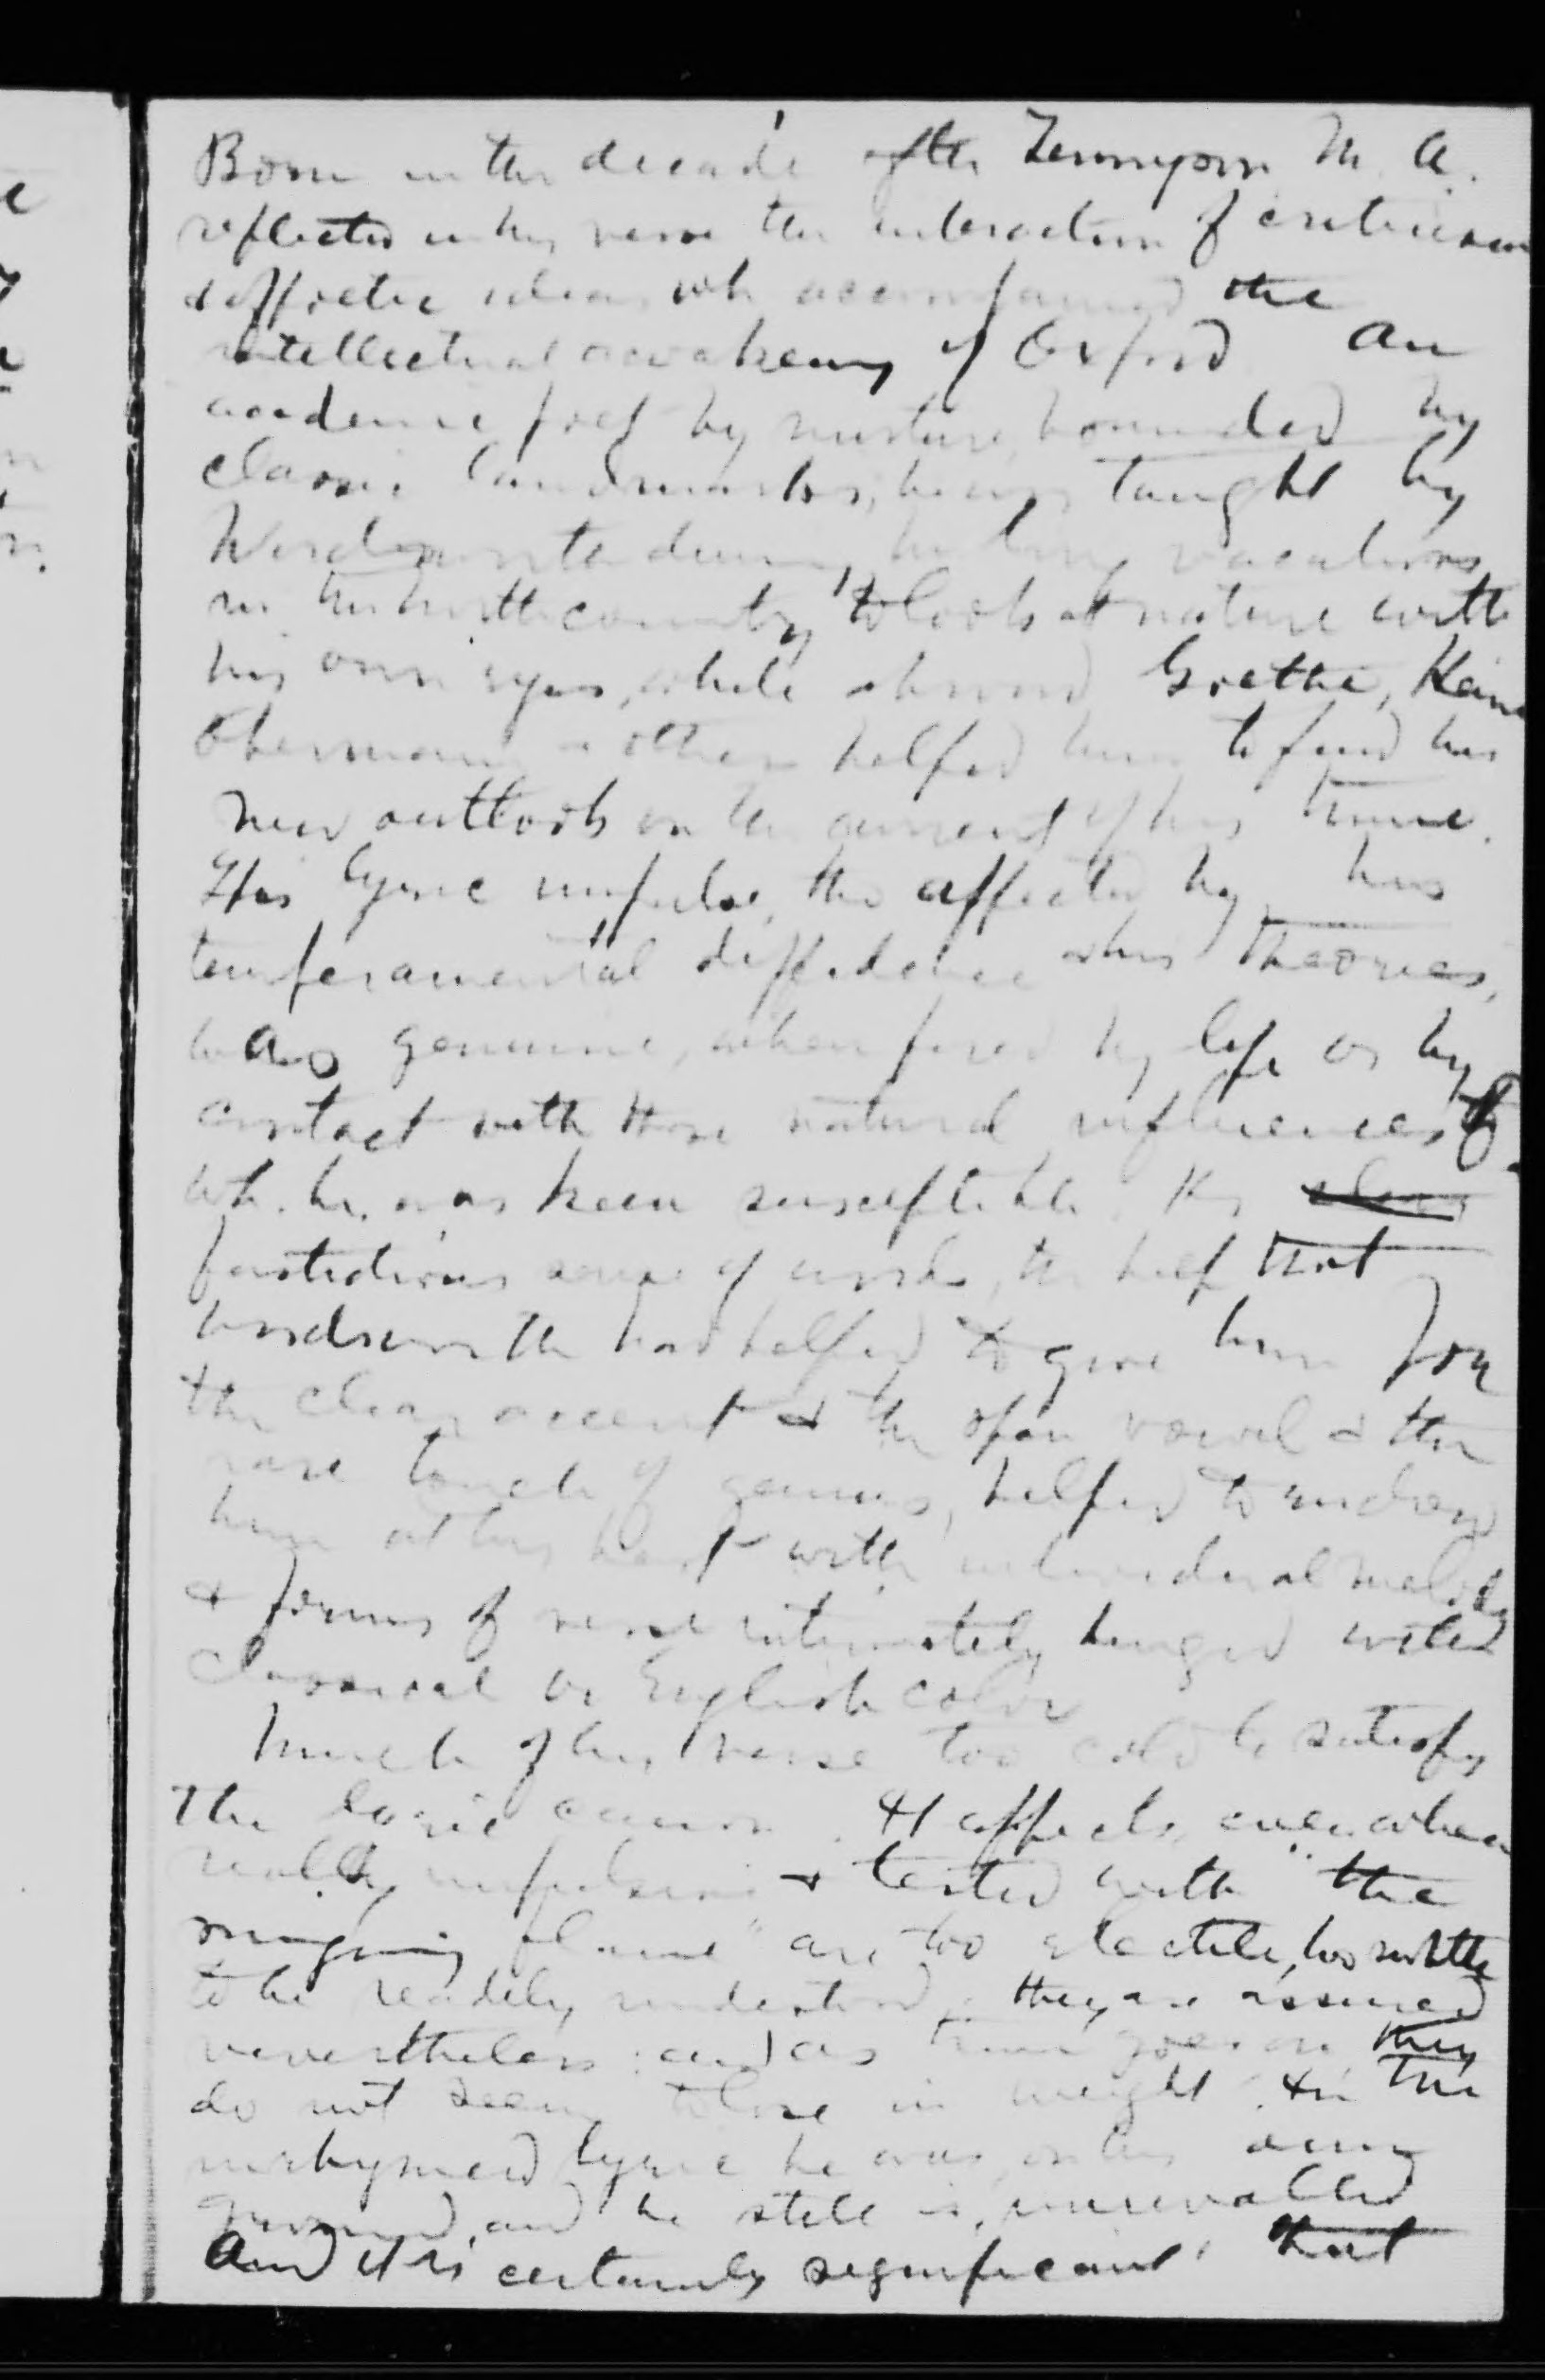 Born in the decade after Tennyson M. A.
reflected in his verse the interaction of criticism
& poetic ideas wh accompanied the
intellectual awakening of Oxford. An
academic poet by nurture, bounded by
classic landmarks, he was taught by
Wordsworth during his long vacations
in the north country, to look at nature with
his own eyes, while abroad Goethe, Heine
Obermann & others helped him to find his
new outlook on the current of his time.
His lyric impulse, tho affected by his
temperamental diffidence & his theories,
was genuine, when fired by life or by
contact with those natural influences to
wh. he was keen susceptible. His
fastidious sense of words, the help that
Wordsworth had helped to give him for
the clear accent & the open vowel & the
rare touch of genius, helped to endow
him at his best with individual melody
& forms of verse intimately tinged with
classical or English color
Much of his verse too cold to satisfy
the lyric canon. His effects, even when
really impulsive & tested with "the
ringing flame" are too tactile, too subtle
to be readily understood; they are assured
nevertheless: and as time goes on, they
do not seem to lose in weight. In the
unrhymed lyric he was, on his own
ground, and he still is, unrivalled
And it is certainly significant that